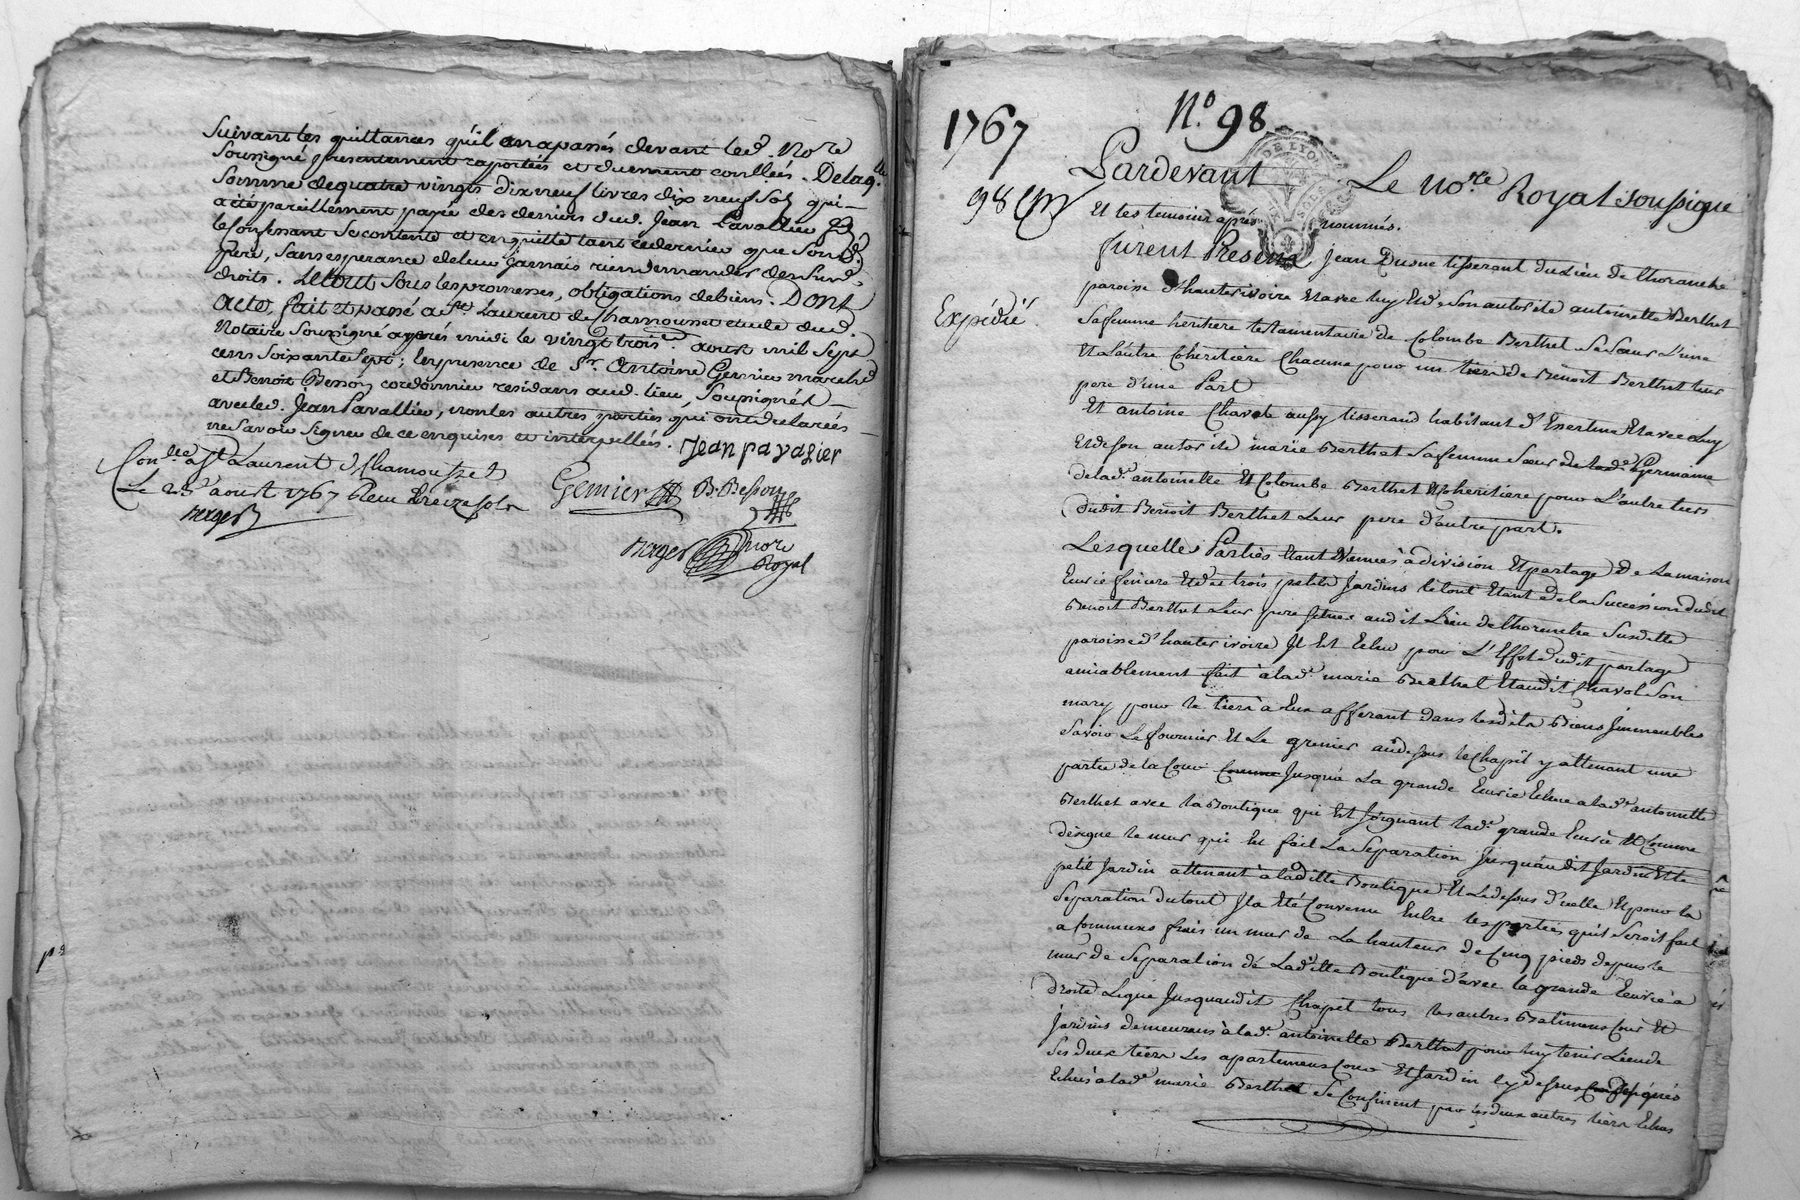 Suivant les quittances qu'il en a passés devant led. No.re
Soussigné presentement raportées et duement conllées. De laq.lle
Somme de quatre vingts dix neuf livres dix neuf Sols qui
a été pareillement payée des deniers dud. Jean Pavallier
le confessant Se contente et en quitte tant ce dernier que Sond.
pere, Sans esperance de leur jamais rien demander desSusd.
droits. Le tout Sous les promesses, obligations de biens. Dont
acte, fait et passé a St Laurent de Chamousset etude dud.
Notaire Soussigné aprés midi le vingt trois aoust mil Sept
cens Soixante Sept; En presence de Sr. Antoine Gemier march.d
et Benoit Besson cordonnier residans aud. lieu, Soussignés
avec led. Jean Pavallier, non les autres parties qui ont declarées
ne Savoir Signer de ce enquises et interpellées. Jean pavalier
Con.llé a St Laurent d Chamousset
Le 23 aoust 1767 Reçu treize Sols
Berger
Gemier B. Besson
Berger nore
Royal
1767
No. 98
98
Expédié
DE LYON
Pardevant Le no.re Royal soussigné
Et les temoins après nommés.
furent Presens Jean Dusne tisserant du Lieu de Thoranche
paroisse d'hauterivoire Et avec luy Et de Son autorité antoinette Berthet
Sa femme heritiere testamentaire de Colombe Berthet Sa Sœur L'une
Et L'autre Coheritière Chacune pour un tiers de Benoit Berthet leur
pere d'une Part
Et antoine Chavot aussy tisserand habitant d' Essertine Et avec Luy
Et de Son autorité marie Berthet Sa femme Sœur de lad. Germaine
de lad. antoinette Et Colombe Berthet Et Coheritière pour L'autre tiers
dudit Benoit Berthet Leur pere d'autre part.
Lesquelles Parties Etant Venues à division Et partage De La maison
Ecurie feniere Et des trois petits Jardins le tout Etant de la Succession dudit
Benoit Berthet Leur pere Situés audit Lieu de Thoranche Susdite
paroisse d'hauterivoire Il Est Echu pour L'Effet dudit partage
amiablement fait à lad. marie Berthet Et audit Chavot Son
mary pour le tiers à Eux afferant dans lesdits Biens Immeubles
Savoir Le fournier Et Le grenier au dessous le Chapit y attenant une
partie de la Cour Comme Jusqua La grande Ecurie Echue a lad. antoinette
Berthet avec la Boutique qui Est Joignant lad. grande Ecurie Et Comme
désigne le mur qui En fait La Separation Jusqu'au dit Jardin Et le
petit Jardin attenant à ladite Boutique Et Le dessus d'icelle Et pour la
Separation du tout Il a Eté Convenu Entre les parties qu'il Seroit fait
a Communs frais un mur de La hauteur de Cinq pieds depuis le
mur de Separation de Ladite Boutique d'avec la grande Ecurie a
droite Ligne Jusquaudit Chapit tous les autres Batimens Cour Et
Jardins demeurans à lad. antoinette Berthet pour luy tenir Lieu de
Ses deux tiers Les apartemens Cour Et Jardin Cy dessus désignés
Echus à lad. marie Berthet Se Confinent par les deux autres tiers Echus